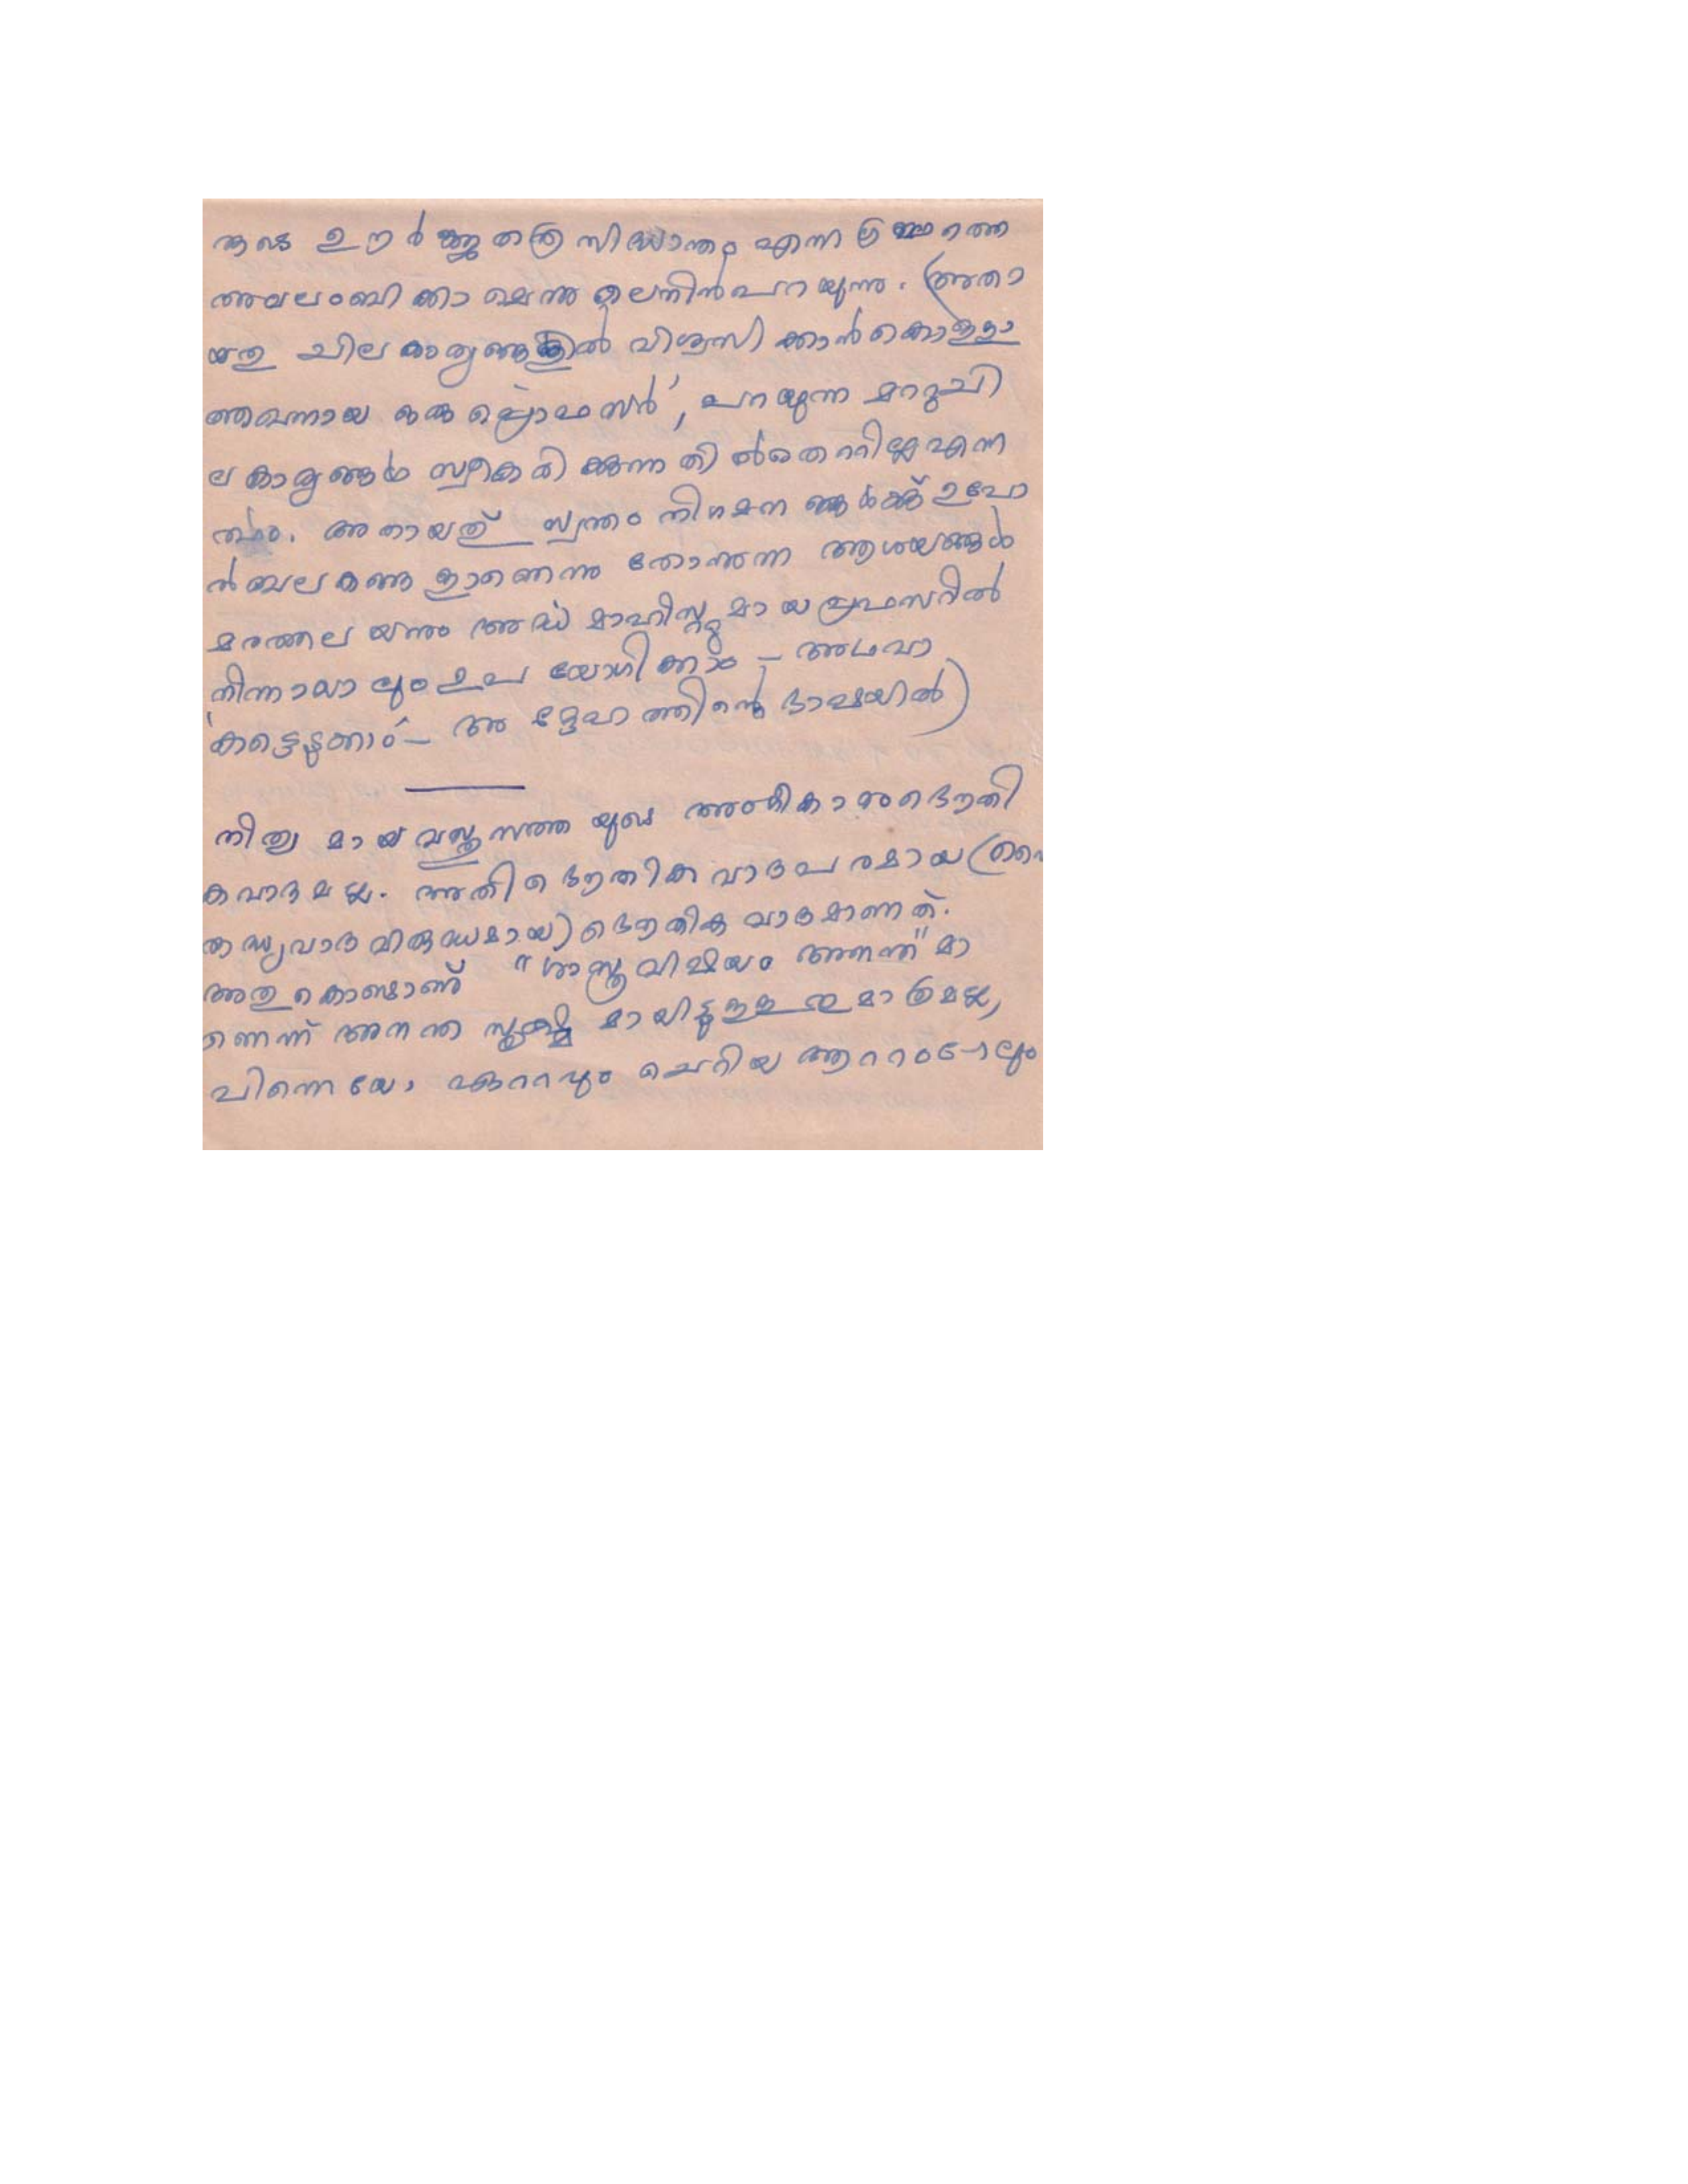 രുടെ ഊർജ്ജതത്ര സിദ്ധാന്തം എന്ന ഗ്രന്ഥത്തെ
അവലംബിക്കാമെന്നു ലെനിൻ പറയുന്നു. (അതാ
യതു ചില കാര്യങ്ങളിൽ വിശ്വസിക്കാൻ കൊള്ളാ
ത്തവനായ ഒരു പ്രൊഫസർ, പറയുന്ന മററുചി
ല കാര്യങ്ങൾ സ്വീകരിക്കുന്നതിൽ തെററില്ല എന്ന
ർത്ഥം. അതായത് സ്വന്തം നിഗമനങ്ങൾക്ക് ഉപോ
ൽബലകങ്ങളാണെന്നു തോന്നുന്ന ആശയങ്ങൾ
മരത്തലയനും അർദ്ധമാഹിസ്റ്റുമായ പ്രഫസറിൽ
നിന്നായാലും ഉപയോഗിക്കാം – അഥവാ
'കട്ടെടുക്കാം' – അദ്ദേഹത്തിന്റെ ഭാഷയിൽ)
നിത്യമായ വസ്തുസത്തയുടെ അംഗീകാരം ഭൌതി
കവാദമല്ല. അതിഭൌതികവാദപരമായ (വൈ
രുദ്ധ്യവാദവിരുദ്ധമായ) ഭൌതികവാദമാണത്.
അതുകൊണ്ടാണ് "ശാസ്ത്രവിഷയം അനന്ത" മാ
ണെന്ന് അനന്തസൂക്ഷ്മമായിട്ടുള്ളതുമാത്രമല്ല,
പിന്നെയോ, ഏററവും ചെറിയ ആററംപോലും